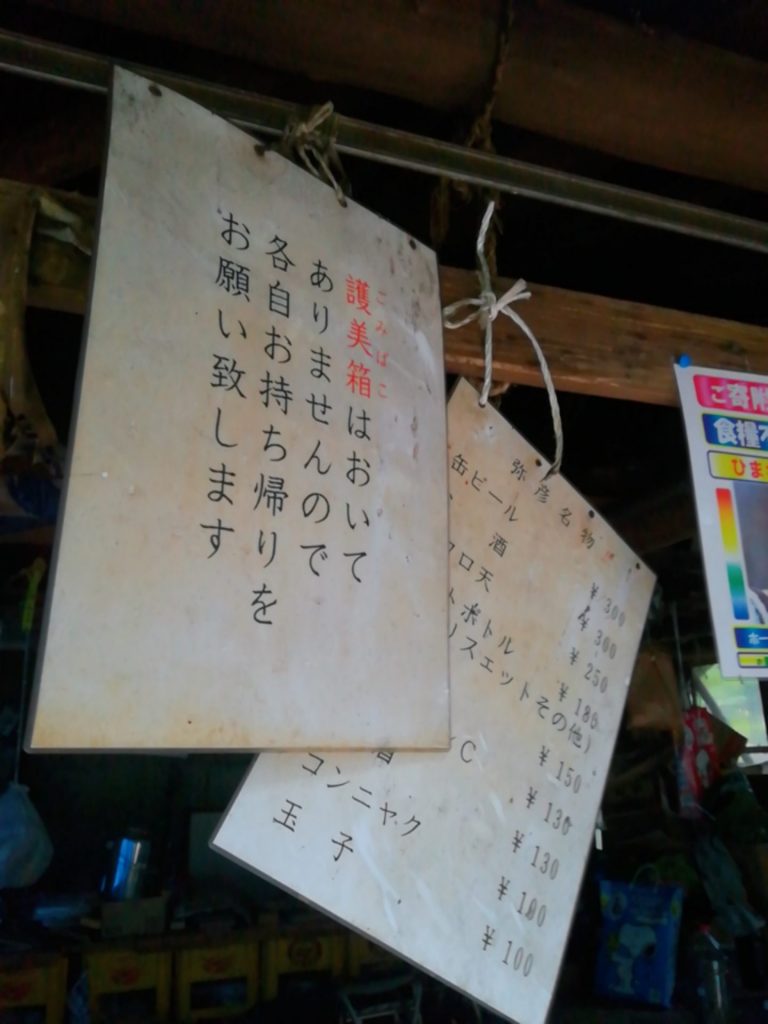 護美箱はおいて
ごみばこ
ありませんので
各自お持ち帰りを
お願い致します
弥彦名物
缶ビール ¥300
酒 ¥300
ロ天 ¥250
ボトル ¥180
スエットその他) ¥150
C ¥130
¥130
コンニャク ¥100
玉子 ¥100
ご寄附
食糧
ひま
ホー